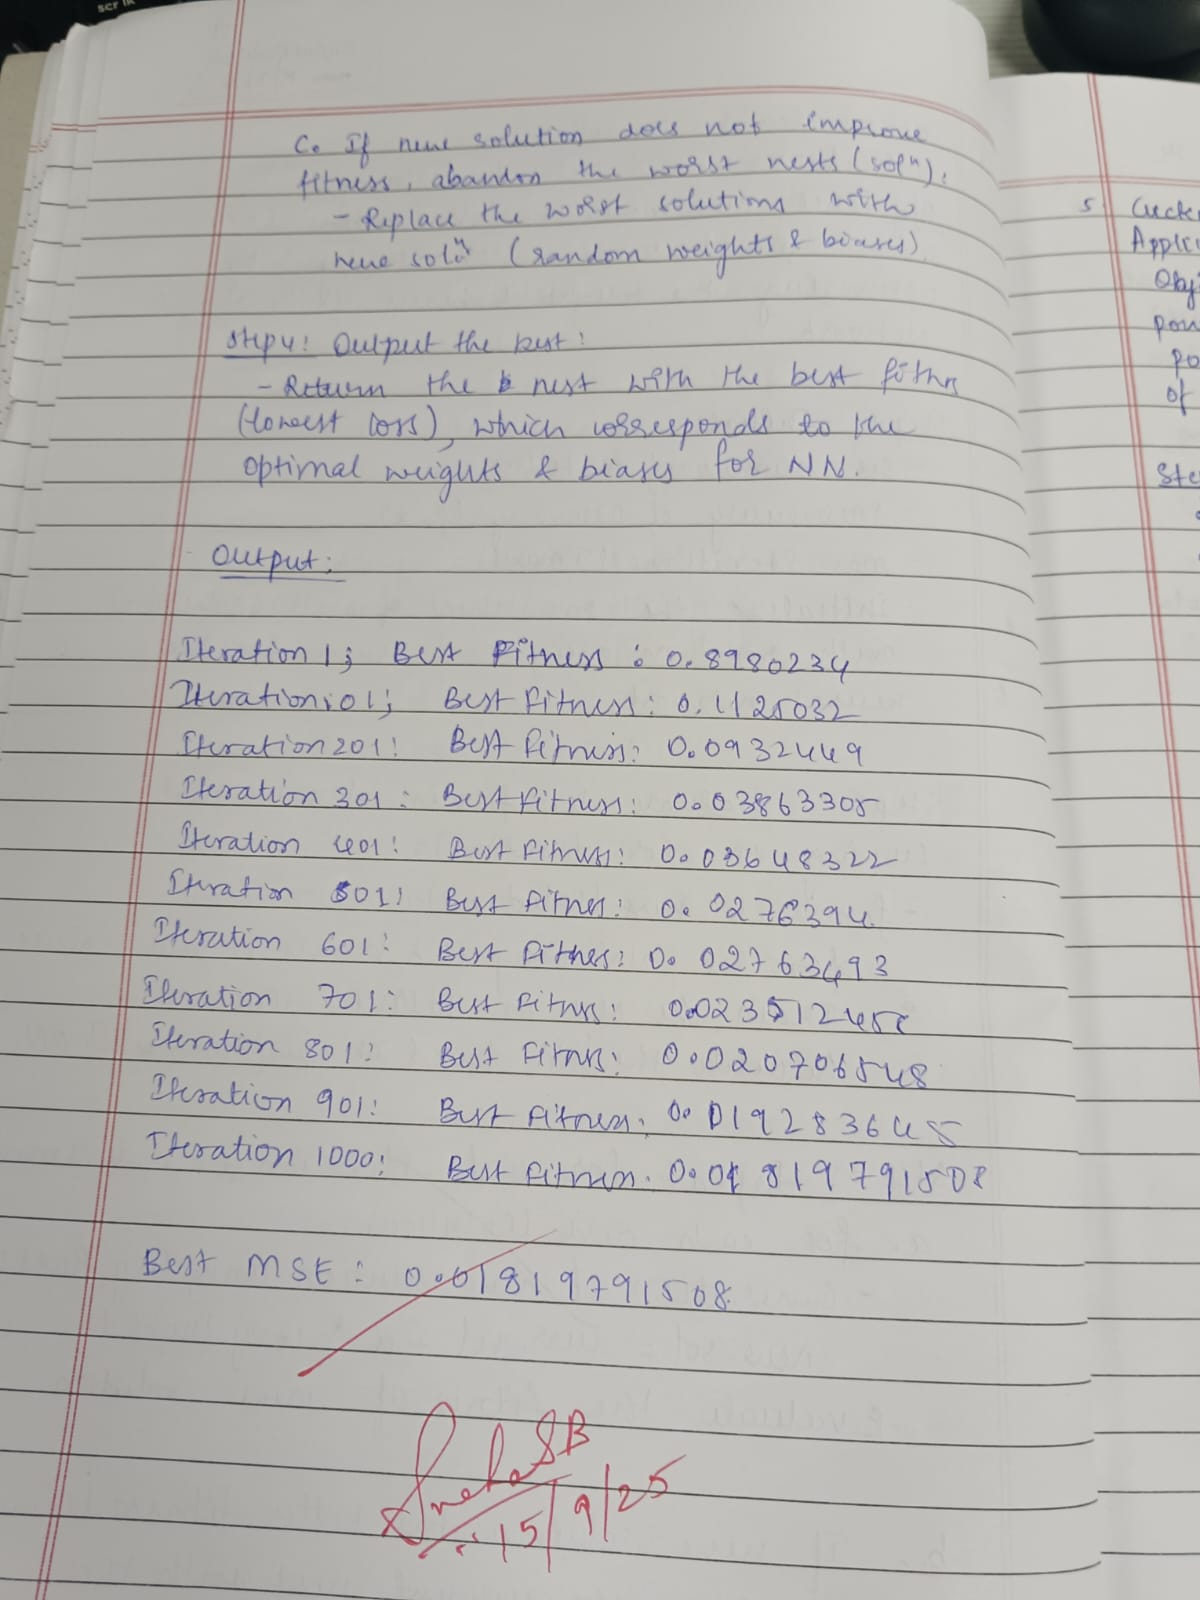 scr lk
C. If new solution does not improve
fitness, abandon the worst nests (solⁿ).
- Replace the worst solutions with
new solⁿ (random weights & biases)
Step 4: Output the best:
- Return the nest with the best fitns
(lowest loss), which corresponds to the
optimal weights & biases for NN.
Output:
Iteration 1; Best Fitness: 0.8980234
Iteration: 01; Best Fitness: 0.1125032
Iteration 201: Best fitness: 0.0932449
Iteration 301: Best fitness: 0.03863305
Iteration 401: Best Fitness: 0.03648322
Iteration 501: Best fitnes: 0.0276394
Iteration 601: Best fitnes: 0.02763493
Iteration 701: Best Fitnss:
Iteration 801: Best Fitnss: 0.020706548
Iteration 901: Best fitness. 0.019283645
Iteration 1000: Best fitness. 0.01819791508
Best MSE: 0.01819791508
Sneha SB
15/9/25
5 Cuck
Applic
Obj
pow
po
of
Ste